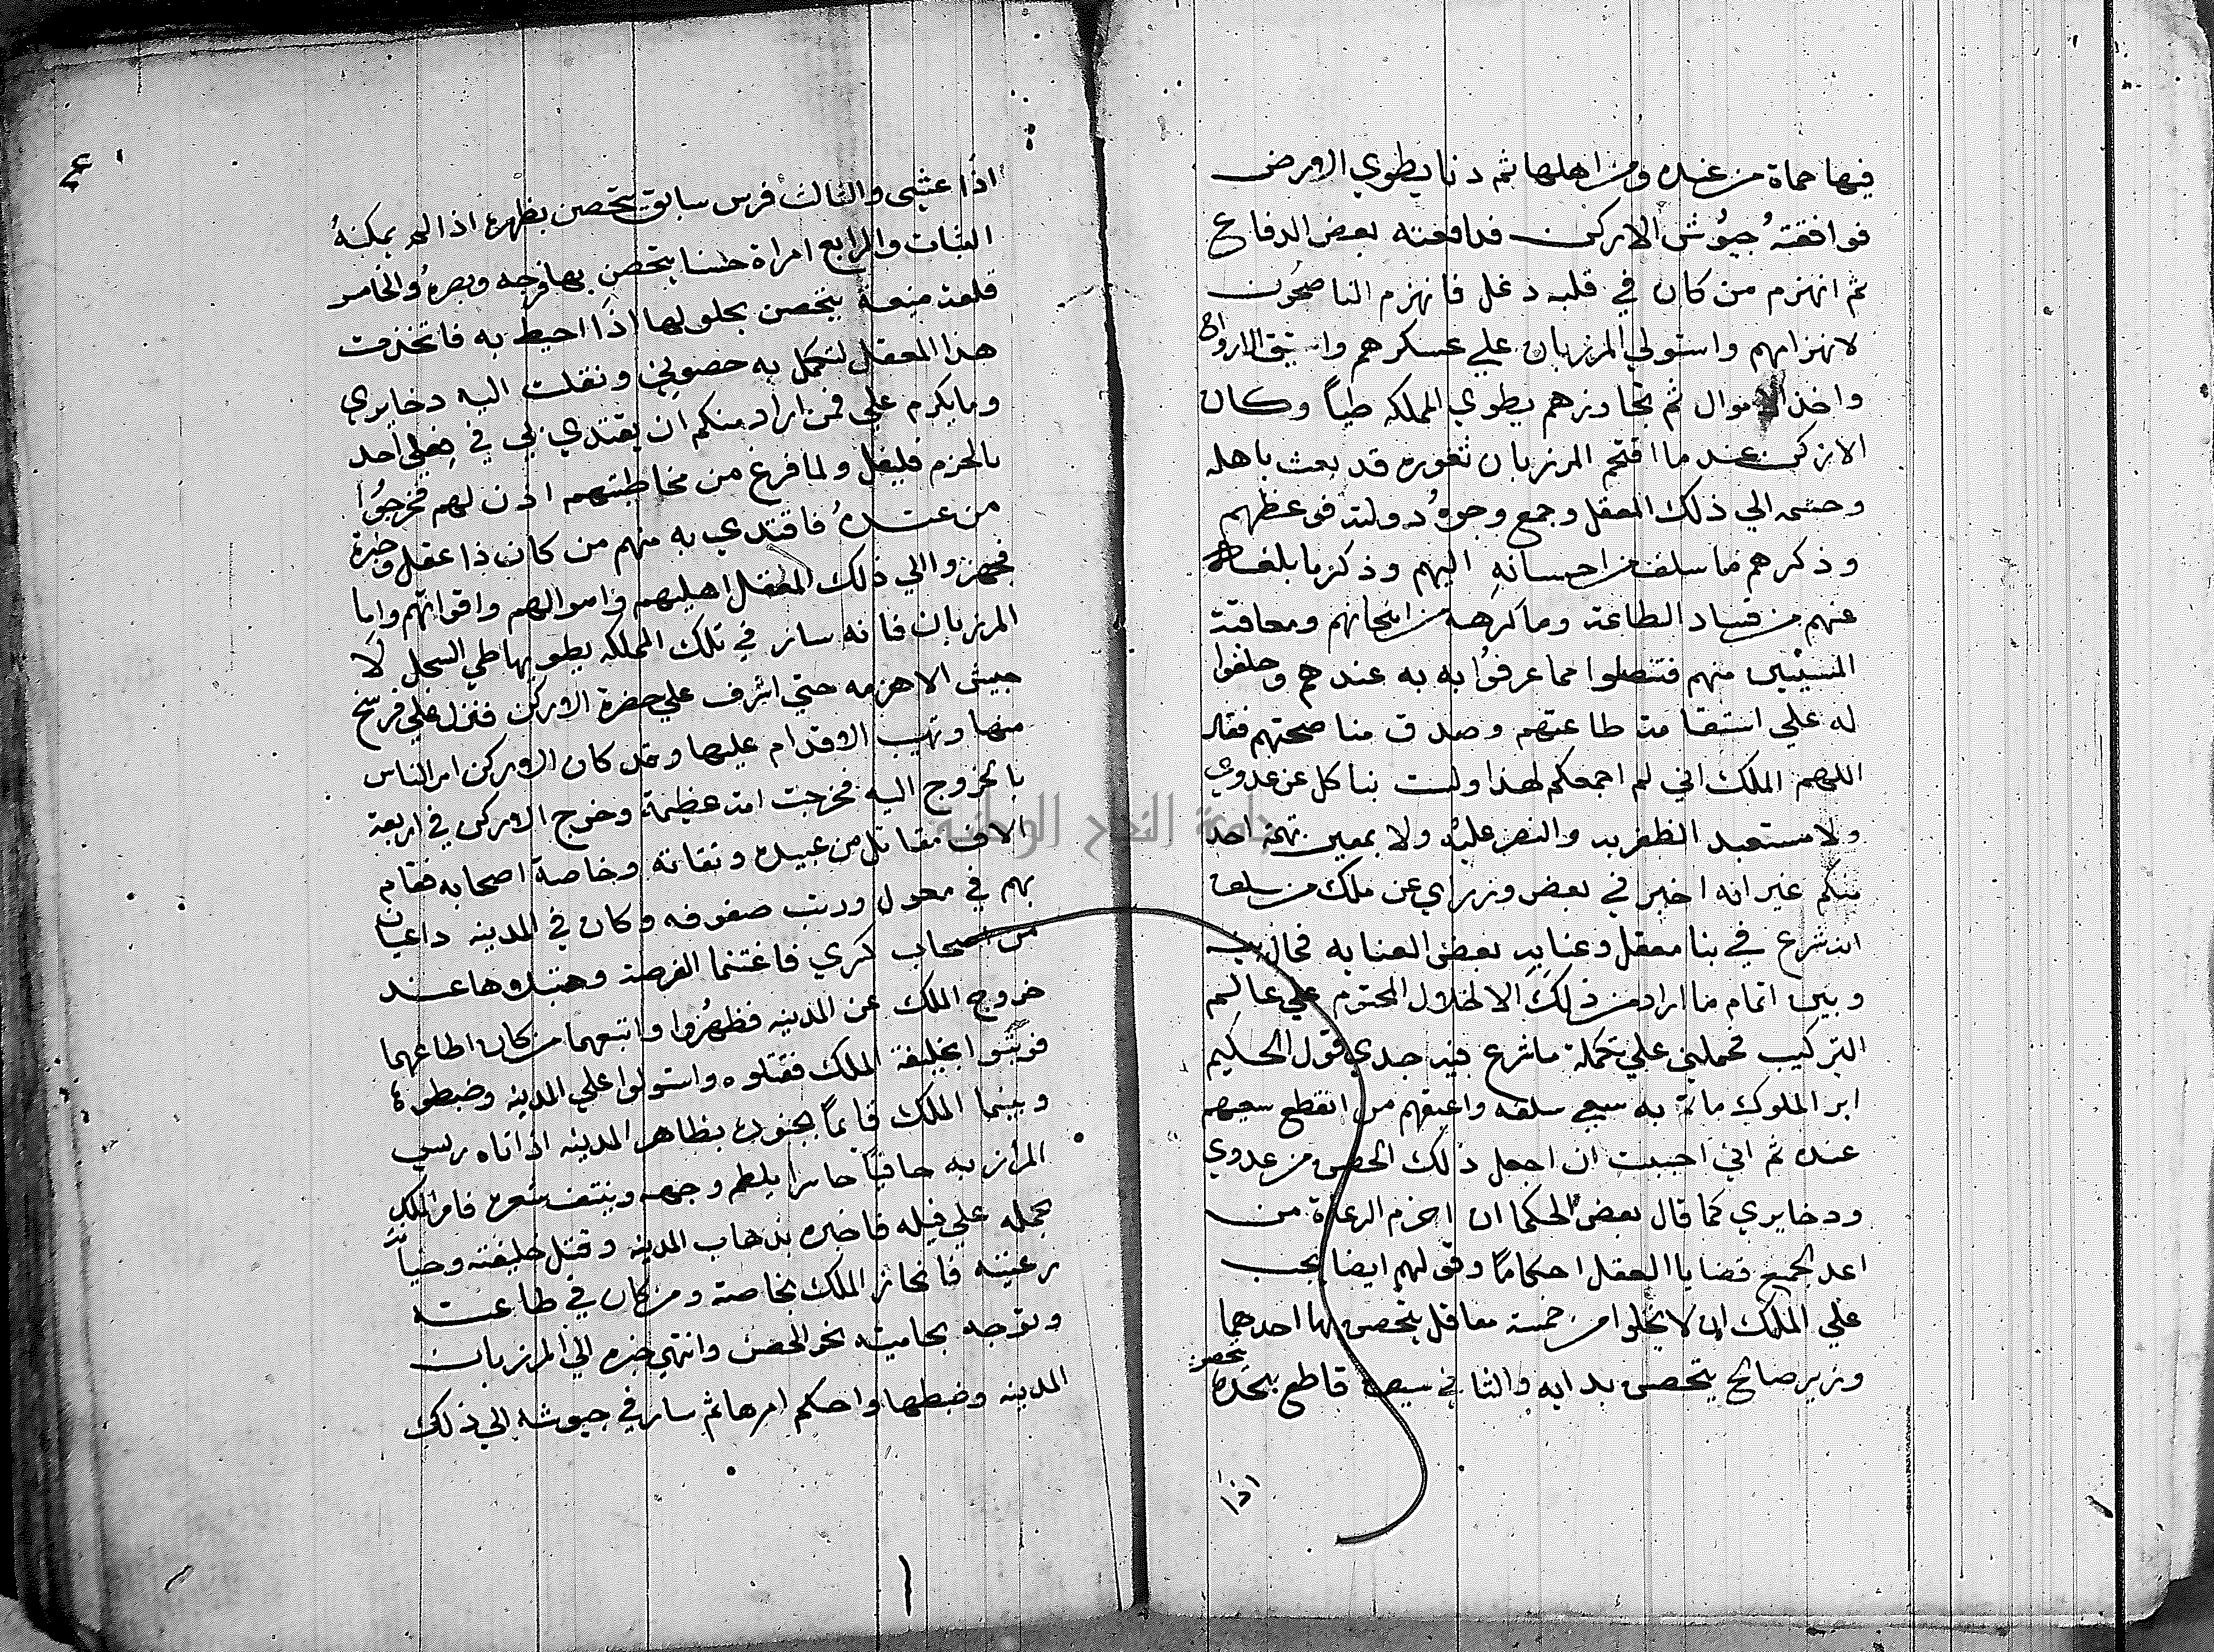 فيها حماة من عنده ومن اهلها ثم دنا يطوي الارض
فوافقته جيوش الاركن فدافعته بعض الدفاع
ثم انهزم من كان في قلبه دغل فانهزم الناصحون
لانهزامهم واستولي المرزبان علي عسكرهم
واخذ الاموال ثم تجاوزهم يطوي المملكه طياً وكان
الاركن عند ما اقتحم المرزبان ثغوره قد بعث باهله
الي ذلك المعقل وجمع وجوه دولته فوعظهم
وذكرهم ما سلف من احسانه اليهم وذكر ما بلغه
عنهم من فساد الطاعة وما كرهه من امتحانهم ومعاقبة
المسيئين منهم فتنصلوا مما عرفوا به عندهم وحلفوا
له علي استقامة طاعتهم وصدق مناصحتهم فقال
اللهم الملك اني لم اجمعكم لهذا ولست بناكل عن عدوي
ولا مستبعد الظفر به والنصر عليه ولا بمعين تهمة احد
منكم غير انه اخبرني بعض وزراي عن ملك من سلف
انه شرع في بنا معقل وعنا به بعض العنايه فحال بينه
وبين اتمام ما اراد من ذلك الانحلال المحتوم علي عالم
التركيب فحملني علي تكملة ما شرع فيه جدي قول الحكيم
ابر الملوك ما تم به سعي سلفه واعقهم من انقطع سعيهم
عنده ثم اني احببت ان اجعل ذلك الحصن من عددي
وذخايري كما قال بعض الحكما ان احزم الرعاة من
اعد لجميع قضايا العقل احكاماً وقولهم ايضا يجب
علي الملك ان لا يخلوا من خمسة معاقل يتحصن بها احدهما
وزير صالح يتحصن برايه والثاني سيف قاطع يتحصن بحده
اذا
٤
اذا عشي والثالث فرس سابق يتحصن بظهره اذا لم يمكنه
الثبات والرابع امراة حسنا يتحصن بها فرجه وبصره والخامس
قلعة منيعة يتحصن بحلولها اذا احيط به فاتخذت
هذا المعقل لتكمل به حصوني ونقلت اليه ذخايري
وما يكرم علي فمن اراد منكم ان يقتدي بي في فعلي احد
بالحزم فليفعل ولما فرغ من مخاطبتهم اذن لهم فخرجوا
من عنده فاقتدي به منهم من كان ذا عقل وخبرة
فجهزوا الي ذلك المعقل اهليهم واموالهم واقواتهم واما
المرزبان فانه سار في تلك المملكه يطويها طي السجل لا
جيش الا هزمه حتي اشرف علي حضرة الاركن فنزل علي فرسخ
منها وتهيب الاقدام عليها وقد كان الاركن امر الناس
بالخروج اليه فخرجت امة عظيمة وخرج الاركن في اربعة
الاف مقاتل من عبيده وثقاته وخاصة اصحابه فقام
بهم في معزل ورتب صفوفه وكان في المدينه داعيان
من اصحاب كري فاغتنما الفرصة عند
خروج الملك عن المدينه فظهروا واتبعهما من كان اطاعهما
فوثبوا بخليفة الملك فقتلوه واستولوا علي المدينه وضبطوها
وبينما الملك قايماً بجنوده بظاهر المدينه اذ اتاه رييس
المرازبه حافياً حاسرا يلطم وجهه وينتف شعره فامر الملك
بحمله علي فيله فاخبره بذهاب المدينه وقتل خليفته
رعيته فانحاز الملك بخاصته ومن كان في طاعته
وتوجه بحاميته نحو الحصن وانتهي خبره الي المرزبان
المدينه وضبطها واحكم امرها ثم سار في جيوشه الي ذلك
جامعة النجاح الوطنية